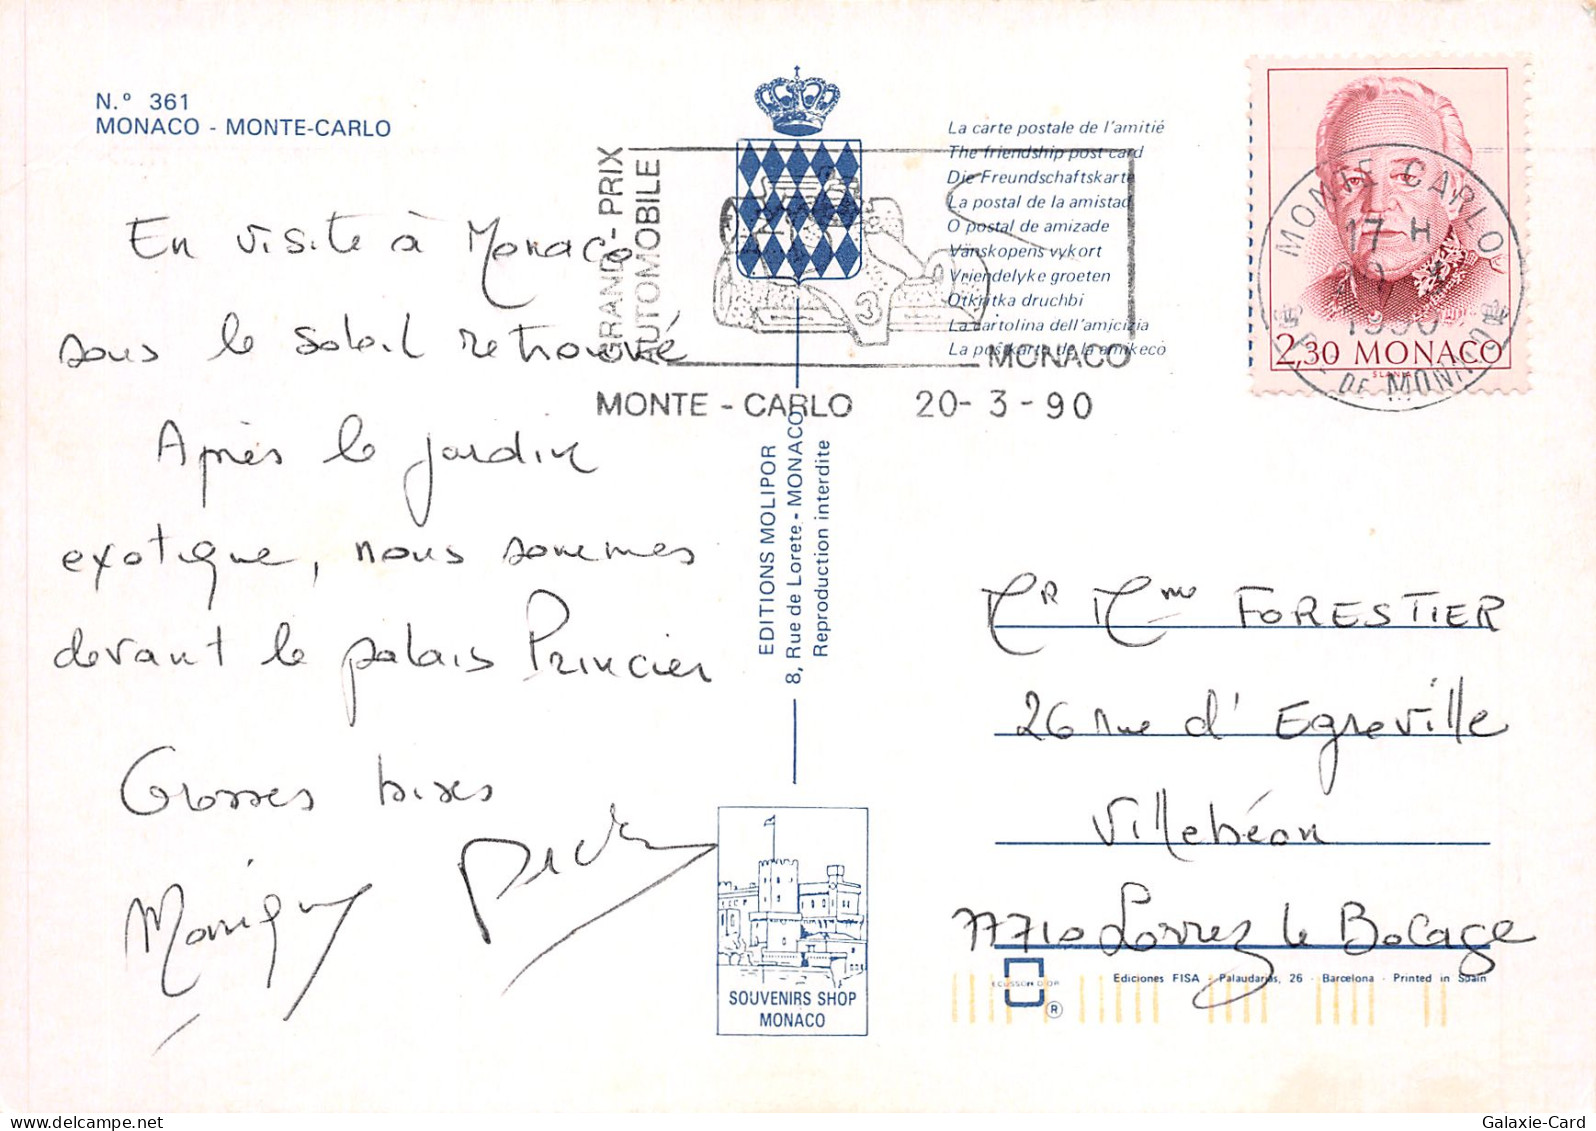 N.º 361
MONACO - MONTE-CARLO
En visite à Monaco
sous le soleil retrouvé
Après le jardin
exotique, nous sommes
devant le palais Princier
Grosses bises
Monique
GRAND-PRIX
AUTOMOBILE
3
MONACO
MONTE - CARLO 20-3-90
La carte postale de l'amitié
The friendship post card
Die Freundschaftskarte
La postal de la amistad
O postal de amizade
Vänskopens vykort
Vriendelyke groeten
Otkritka druchbi
La cartolina dell'amicizia
La poŝtkarto de la amikeco
MONTE CARLO
17 H
1990
DE MONACO
2,30 MONACO
EDITIONS MOLIPOR
8, Rue de Lorete - MONACO
Reproduction interdite
SOUVENIRS SHOP
MONACO
Mr Mme FORESTIER
26 rue d'Egreville
Villebéon
77710 Lorrez le Bocage
ECUSSON D'OR
®
Ediciones FISA - Palaudarias, 26 - Barcelona - Printed in Spain
Galaxie-Card